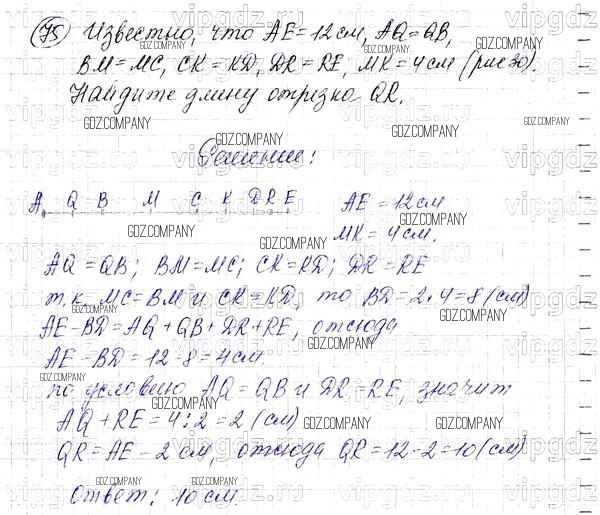 75 Известно, что AE=12см, AQ=QB,
BM=MC, CK=KD, DR=RE, MK=4см (рис 30).
Найдите длину отрезка QR.
Решение:
A Q B M C K D R E AE=12см
MK=4см.
AQ=QB; BM=MC; CK=KD; DR=RE
т.к. MC=BM и CK=KD, то BD=2·4=8(см)
AE-BD=AQ+QB+DR+RE, отсюда
AE-BD=12-8=4см
по условию AQ=QB и DR=RE, значит
AQ+RE=4:2=2(см)
QR=AE-2см, отсюда QR=12-2=10(см)
Ответ: 10см.
GDZ.COMPANY
vipgdz.ru